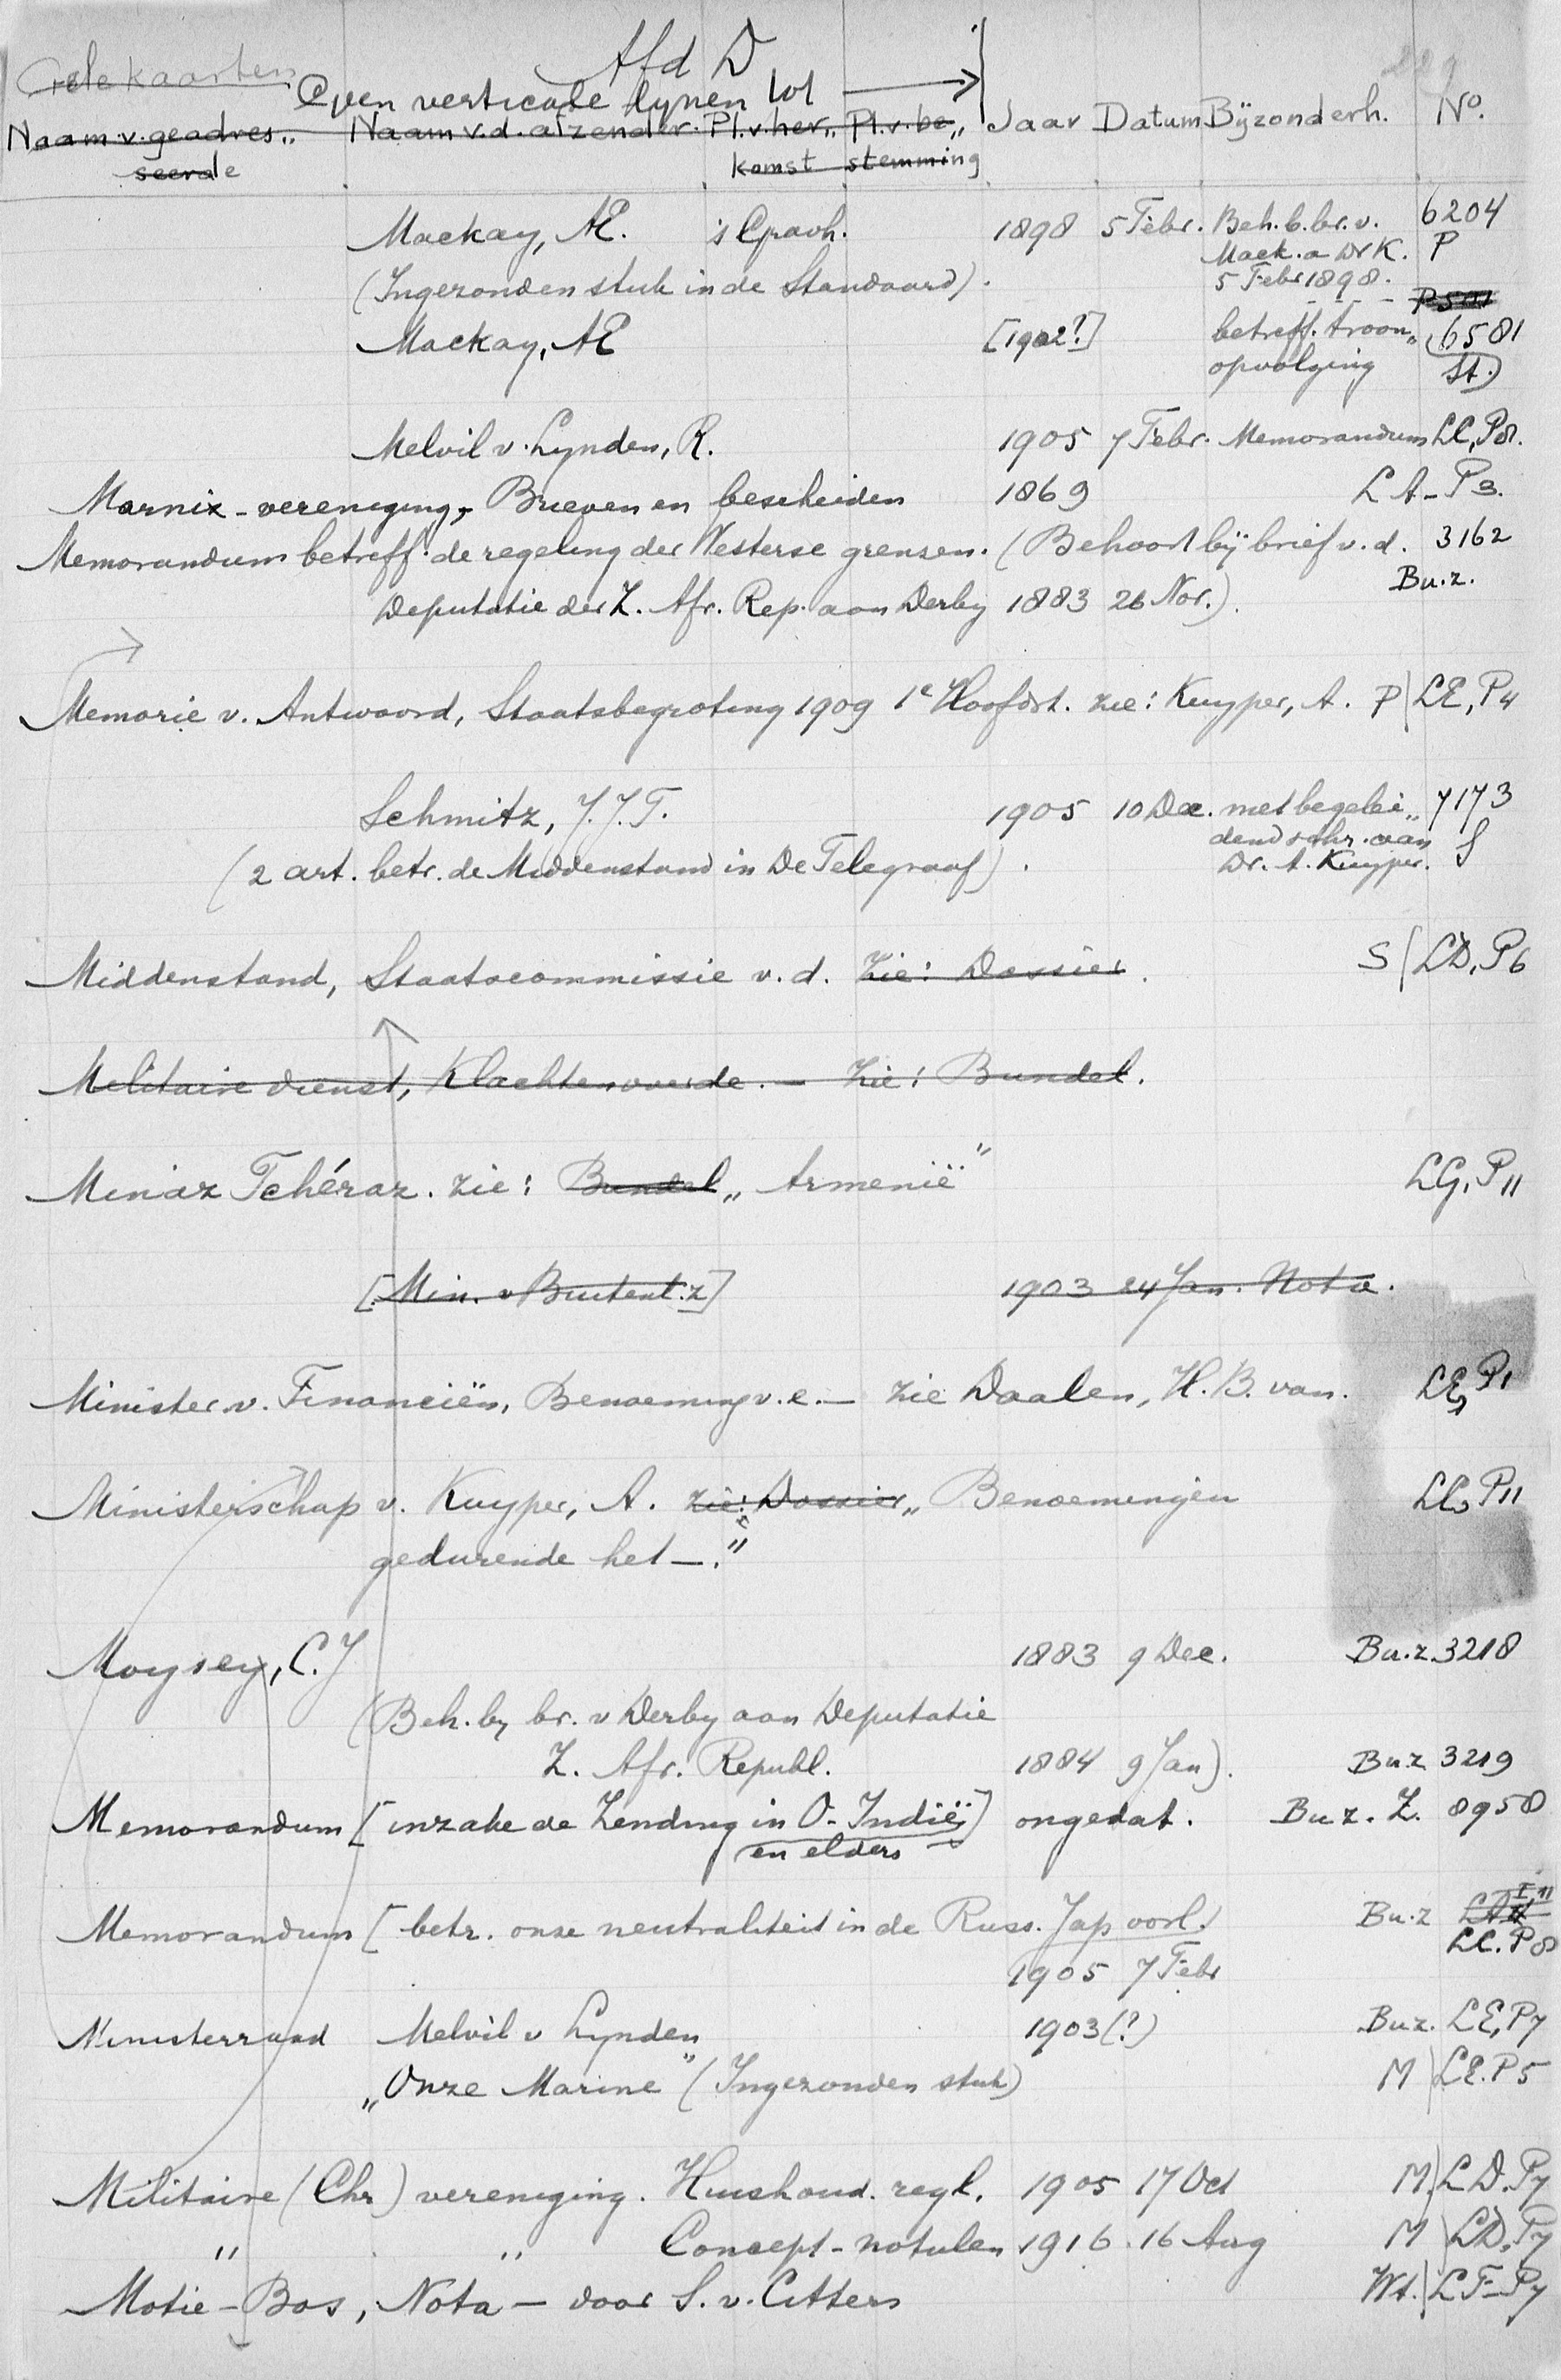 Afd D
Gele kaarten
Open verticale lynen tot
Naam v. geadres„ Naam v. d. afzender. Pl. v. her„ Pl. v. be„ Jaar Datum Bijzonderh. No.
seerde komst stemming
Mackay, AE. 's Gravh. 1898 5 Febr. Beh. b. br. v. 6204
Mack. a Dr K. P
(Ingezonden stuk in de Standaard). 5 Febr 1898.
Mackay, AE [1902?] betreff. troon„ 6581
opvolging St.)
Melvil v. Lynden, R. 1905 7 Febr. Memorandum LC, P8.
Marnix-vereniging, Brieven en bescheiden 1869 LA-P3.
Memorandum betreff. de regeling der Westerse grenzen. (Behoort bij brief v. d. 3162
Bu. z.
Deputatie der Z. Afr. Rep. aan Derby 1883 26 Nov.).
Memorie v. Antwoord, Staatsbegroting 1909 1e Hoofdst. zie: Kuyper, A. P | LE, P4
Schmitz, J. J. F. 1905 10 Dec. met begelei„ 7173
dend schr. van S
(2 art. betr. de Middenstand in De Telegraaf). Dr. A. Kuyper.
Middenstand, Staatscommissie v. d. Zie: Dossier. S | LD, P6
Militaire dienst, Klachten over de. — Zie: Bundel.
Minaz Tchéraz. Zie: Bundel „Armenië" LG, P11
[Min. v Buitenl. z] 1903 24 Jan. Nota.
Minister v. Financiën, Benoeming v. e. — zie Daalen, H. B. van. LE, P1
Ministerschap v. Kuyper, A. zie: Dossier „Benoemingen LC, P11
gedurende het —."
Moysey, C. J 1883 9 Dec. Bu. z. 3218
(Beh. by br. v Derby aan Deputatie
Z. Afr. Republ. 1884 9 Jan). Bu z 3219
Memorandum [inzake de Zending in O-Indië] ongedat. Bu z. Z. 8958
en elders
Memorandum [betr. onze neutraliteit in de Russ. Jap oorl. Bu. z
LC. P8
1905 7 Febr
Ministerraad Melvil v Lynden 1903 (?) Bu z. LE, P7
„Onze Marine" (Ingezonden stuk) M | LE. P5
Militaire (Chr) vereniging. Huishoud. regl. 1905 17 Oct M | LD. P7
" " Concept-notulen 1916. 16 Aug M | LD, P7
Motie-Bos, Nota — door S. v. Citters Wt. | LF-P7